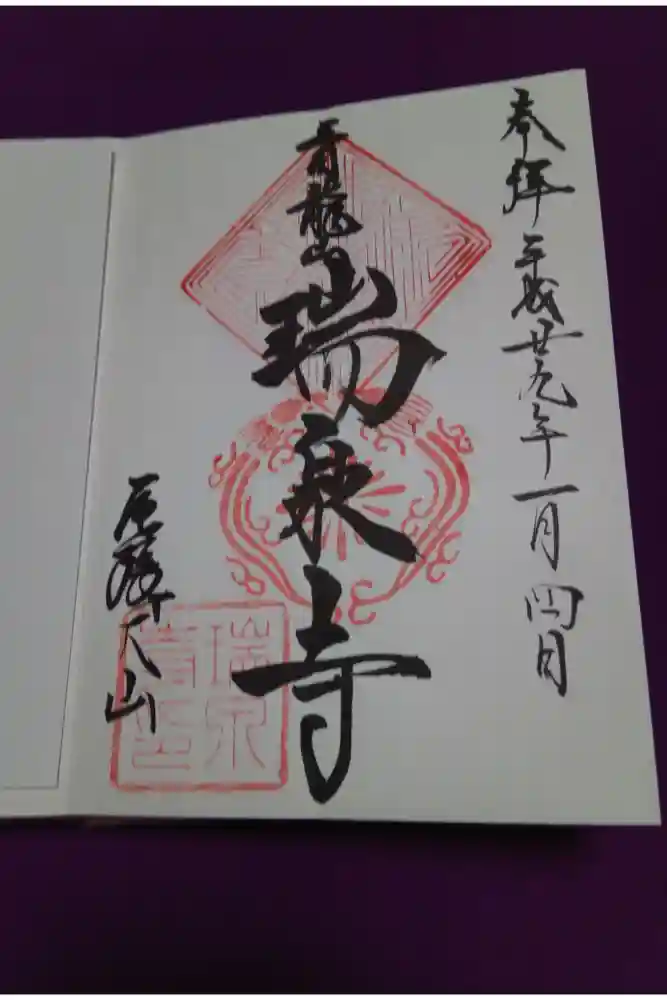 奉拝 平成廿九年一月四日
青龍山
瑞泉寺
犬山
瑞泉寺印